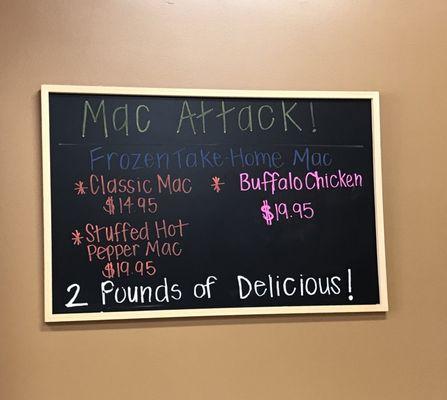 Mac Attack!
Frozen Take-Home Mac
* Classic Mac
$14.95
* Stuffed Hot
Pepper Mac
$19.95
* Buffalo Chicken
$19.95
2 Pounds of Delicious!